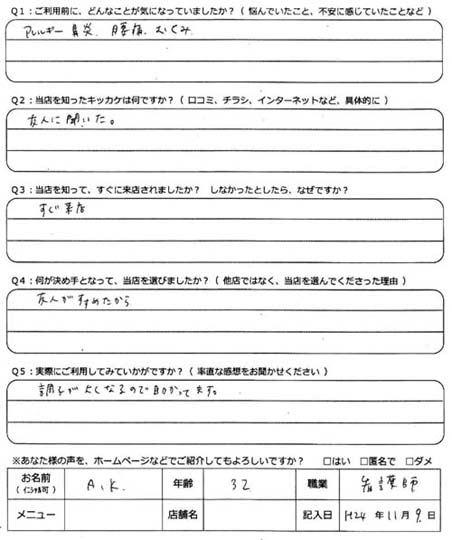 Q1：ご利用前に、どんなことが気になっていましたか？（ 悩んでいたこと、不安に感じていたことなど ）
アレルギー鼻炎、腰痛、むくみ
Q2：当店を知ったキッカケは何ですか？（ 口コミ、チラシ、インターネットなど、具体的に ）
友人に聞いた。
Q3：当店を知って、すぐに来店されましたか？ しなかったとしたら、なぜですか？
すぐ来店
Q4：何が決め手となって、当店を選びましたか？（ 他店ではなく、当店を選んでくださった理由 ）
友人がすすめたから
Q5：実際にご利用してみていかがですか？（ 率直な感想をお聞かせください ）
調子が良くなるので助かってます。
※あなた様の声を、ホームページなどでご紹介してもよろしいですか？ □はい □匿名で □ダメ
お名前（ イニシャル可 ） A.K. 年齢 32 職業 看護師
メニュー 店舗名 記入日 H24年11月9日